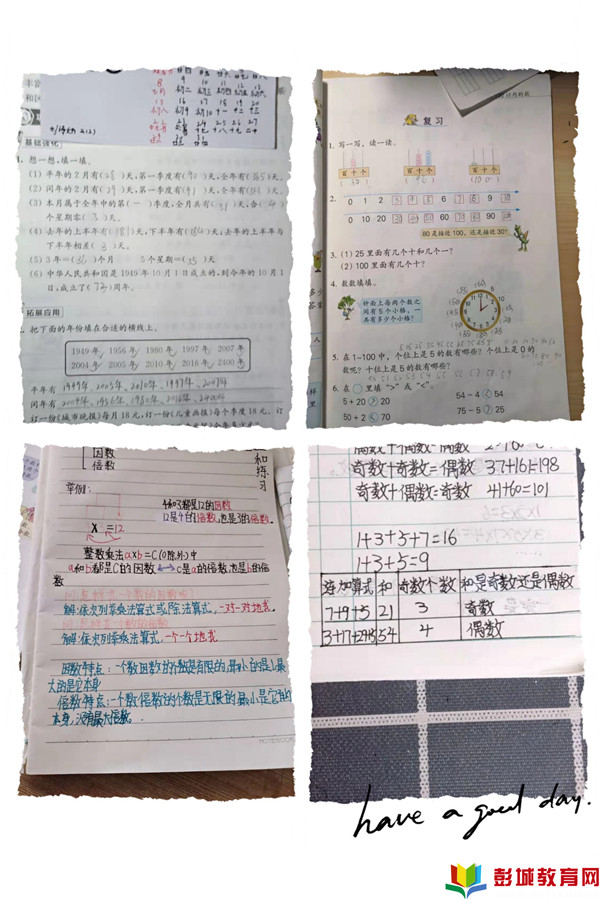 基础强化
想一想,填一填。
(1) 平年的2月有(28)天,第一季度有(90)天,全年有(365)天。
(2) 闰年的2月有(29)天,第一季度有(91)天,全年有(366)天。
(3) 本月属于全年中的第(一)季度,全月共有(31)天,含(4)
个星期零(3)天。
(4) 去年的上半年有(181)天,下半年有(184)天,去年的上半年与
下半年相差(3)天。
(5) 3年=(36)个月 5个星期=(35)天
(6) 中华人民共和国是1949年10月1日成立的,到今年的10月1
日,成立了(72)周年。
拓展应用
把下面的年份填在合适的横线上。
1949年 1956年 1980年 1997年 2007年
2004年 2005年 2010年 2016年 2400年
平年有 1949年、2005年、2010年、1997年、2007年
闰年有 2004年、1956年、1980年、2016年、2400年
订一份《城市晚报》每月18元,订一份《儿童画报》每个季度18元。订
复习
1. 写一写,读一读。
百 十 个 百 十 个 百 十 个
2.
0 1 2 3 4 5 6 7 8 9 10
0 10 20 30 40 50 60 70 80 90 100
80是接近100,还是接近30?
3. (1) 25里面有几个十和几个一?
(2) 100里面有几个十?
4. 数数填填。
钟面上每两个数之
间有5个小格,一
共有多少个小格?
5. 在1~100中,个位上是5的数有哪些?个位上是0的
数呢?十位上是5的数有哪些?
6. 在○里填“>”或“<”。
5+20>20 54-4<54
50+2<70 75-5>25
因数
倍数
和
练
习
举例:
4和3都是12的因数
12是4的倍数,也是3的倍数。
×=12
整数乘法a×b=C(0除外)中
a和b都是C的因数 ⟷ c是a的倍数,也是b的倍
数
问:怎样求一个数的因数呢?
解:依次列乘法算式或除法算式,一对一对地求。
问:怎样求一个数的倍数
解:依次列乘法算式,一个一个地求。
因数特点:一个数因数的个数是有限的,最小的是1,最
大的是它本身
倍数特点:一个数倍数的个数是无限的,最小是它的
本身,没有最大倍数。
NOTEBOOK
奇数+奇数=偶数 37+161=198
奇数+偶数=奇数 41+60=101
1+3+5+7=16
1+3+5=9
连加算式 和 奇数个数 和是奇数还是偶数
7+9+5 21 3 奇数
54 4 偶数
have a good day.
彭城教育网